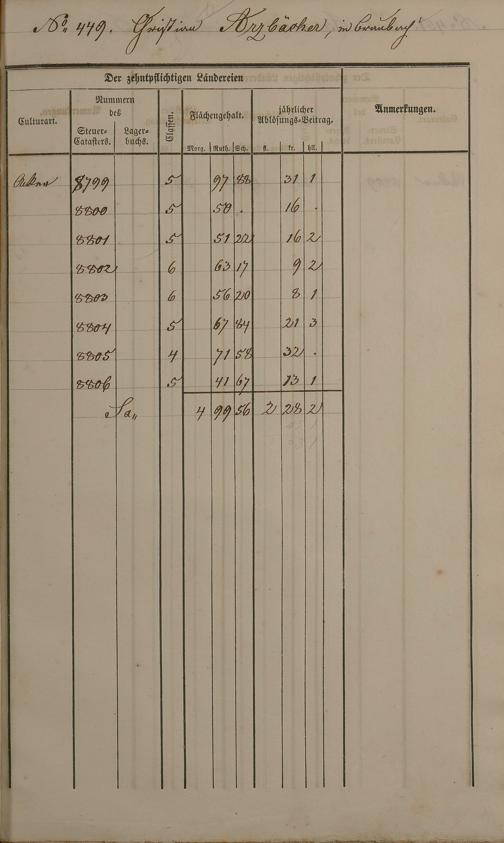 No. 449. Christian Arzbächer, in Braubach.
Der zehntpflichtigen Ländereien
Culturart. Nummern des Classen. Flächengehalt. jährlicher Ablösungs-Beitrag. Anmerkungen.
Steuer-Catasters. Lager-buchs. Morg. Ruth. Sch. fl. kr. hll.
Acker 8799 5 97 88 31 1
8800 5 50 . 16 .
8801 5 51 22 16 2
8802 6 63 17 9 2
8803 6 56 20 8 1
8804 5 67 84 21 3
8805 4 71 58 32 .
8806 5 41 67 13 1
Sa. 4 99 56 2 28 2